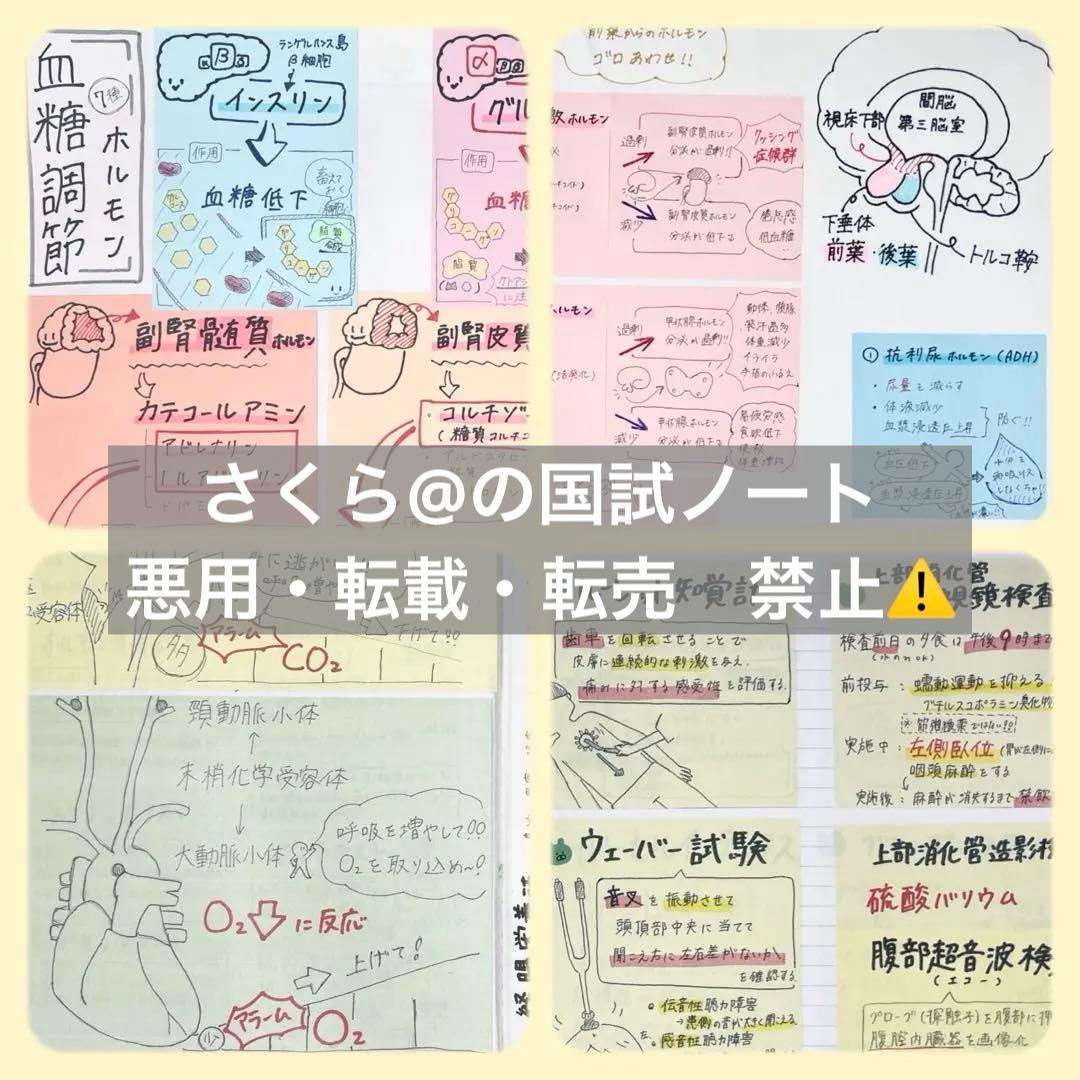 血糖調節
7種
ホルモン
αβδ
ランゲルハンス島
β細胞
インスリン
作用
血糖低下
蓄えて
おく
グルコース
グリコーゲン
脂質
α
グル
作用
血糖
グリコーゲン
脂質
副腎髄質ホルモン
カテコールアミン
アドレナリン
ノルアドレナリン
副腎皮質
・コルチゾ
(糖質コルチコ
前葉からのホルモン
ゴロあわせ!!
ホルモン
過剰
副腎皮質ホルモン
分泌が過剰!!
クッシング
症候群
減少
副腎皮質ホルモン
分泌が低下↓
倦怠感
低血糖
ルモン
過剰
甲状腺ホルモン
分泌が過剰!!
動悸、頻脈
発汗過多
体重減少
イライラ
手指のふるえ
減少
甲状腺ホルモン
分泌が低下
易疲労感
食欲低下
便秘
体重増加
間脳
視床下部
第三脳室
下垂体
前葉・後葉
トルコ鞍
① 抗利尿ホルモン(ADH)
・尿量を減らす
・体液減少
血漿浸透圧上昇
防ぐ!!
血圧低下
血漿浸透圧上昇
水分を
再吸収
しなくちゃ!!
さくら@の国試ノート
悪用・転載・転売 禁止⚠️
受容体
多
アラーム
CO₂
下げて!!
頸動脈小体
↑
末梢化学受容体
↓
大動脈小体
呼吸を増やして!!
O₂を取り込め〜!
O₂⇩に反応
上げて!
少
アラーム
O₂
歯車を回転させることで
皮膚に連続的な刺激を与え、
痛みに対する感受性を評価する。
上部消化管
視鏡検査
検査前日の夕食は午後9時まで
(水のみOK)
前投与:蠕動運動を抑える
ブチルスコポラミン臭化物
※筋弛緩薬ではない!!
実施中:左側臥位
咽頭麻酔をする
実施後:麻酔が消失するまで禁飲
ウェーバー試験
音叉を振動させて
頭頂部中央に当てて
聞こえ方に左右差がないか
を確認する
伝音性聴力障害
→患側の音が大きく聞こえる
感音性聴力障害
上部消化管造影検
硫酸バリウム
腹部超音波検
(エコー)
プローブ(探触子)を腹部に押
腹腔内臓器を画像化